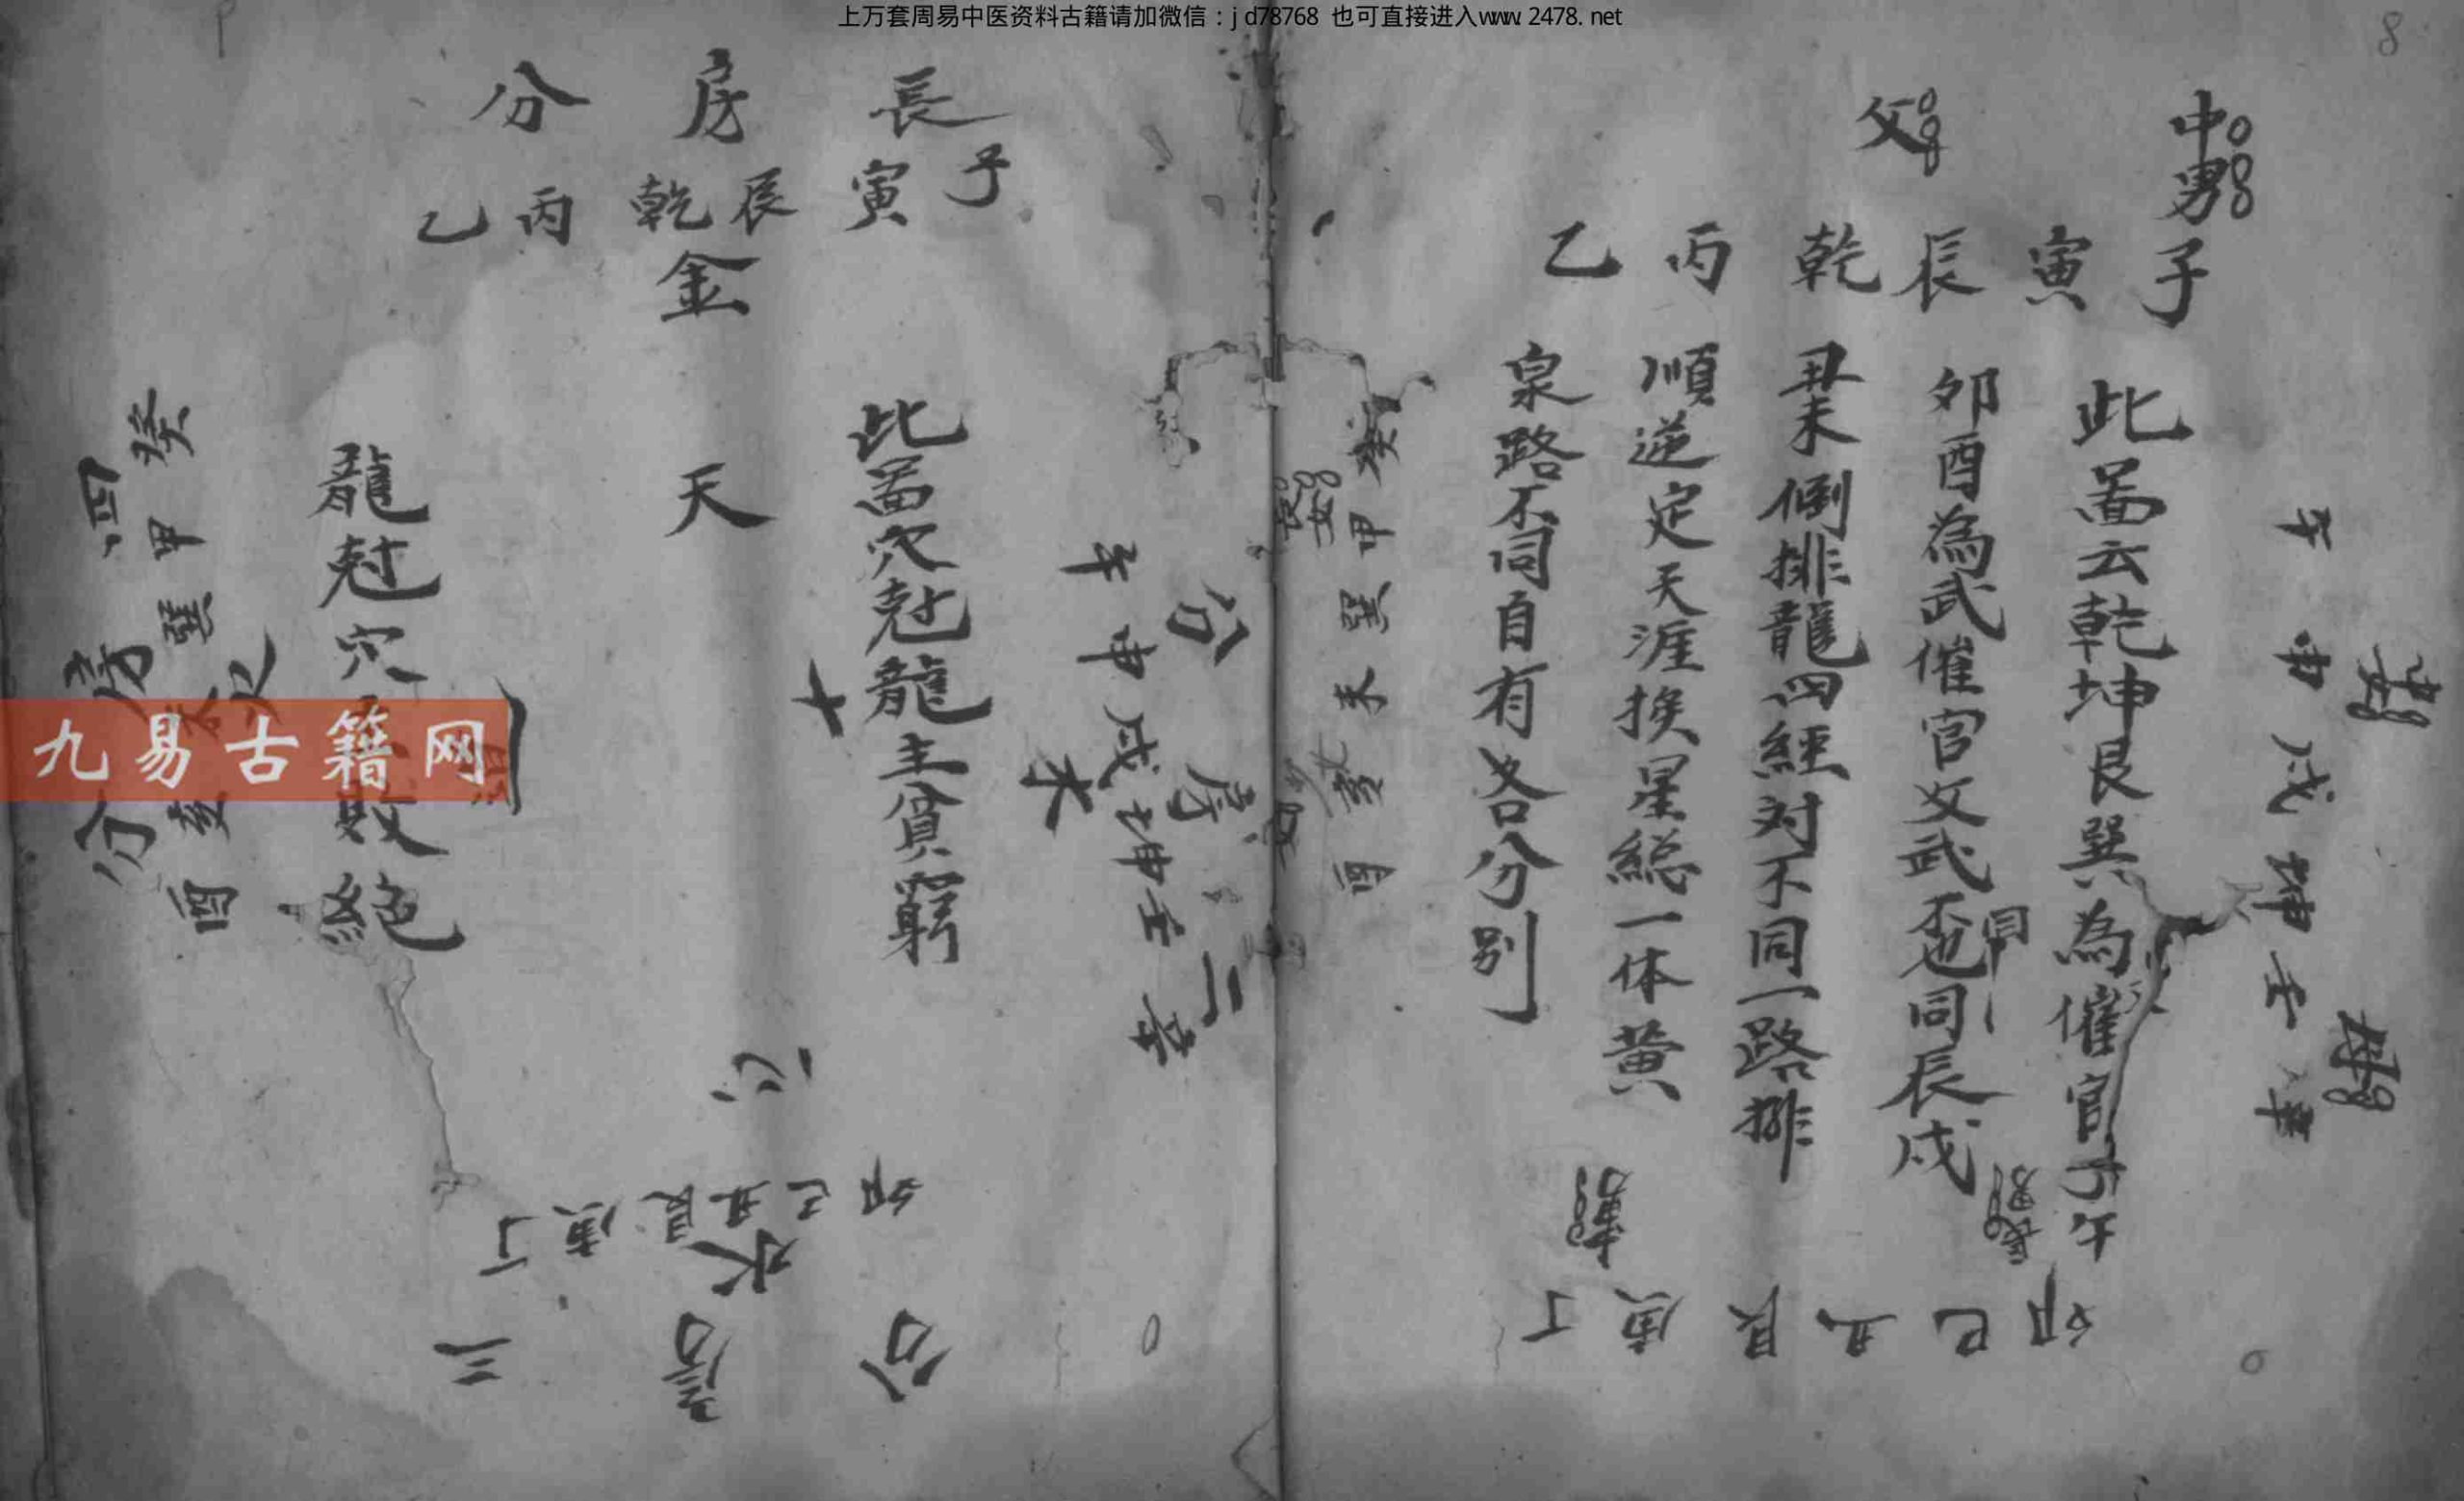 上万套周易中医资料古籍请加微信：jd78768 也可直接进入www.2478.net
8
中男
父
子寅辰乾丙乙
午申戌坤壬辛
此啚云乾坤艮巽為催官子午
卯酉為武催官文武不同辰戌
丑未倒排龍四經対不同一路排
順逆定天涯換星総一体黄
泉路不同自有各分別
長男
卯巳丑艮庚丁
癸甲巽未亥酉
長房分
子寅辰乾丙乙
金
二房分
午申戌坤壬辛
木
此啚穴尅龍主貧窮
天
十
心
龍尅穴敗絶
卯巳丑艮庚丁
水
三房分
四房分
癸甲巽未亥酉
火
九易古籍网